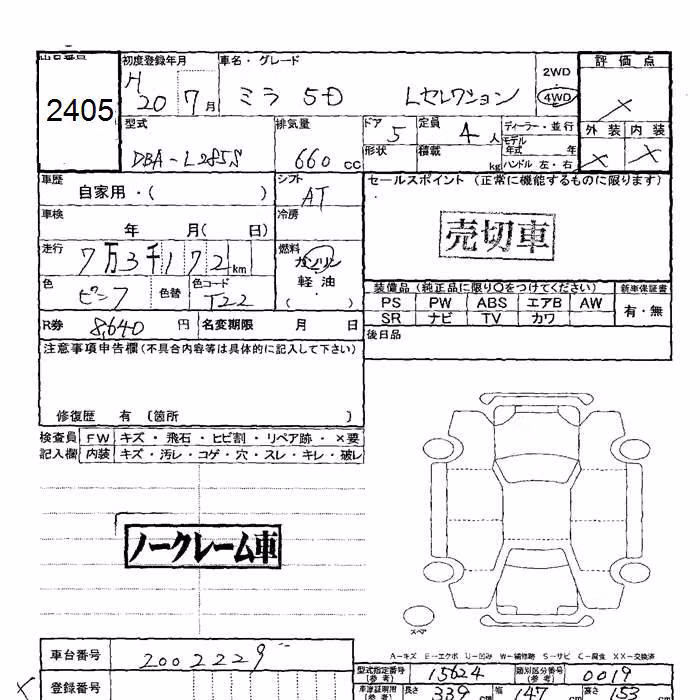 2405
初度登録年月 車名・グレード 評価点
H 20 7月 ミラ 5D Lセレクション 2WD 4WD ×
型式 排気量 ドア 5 定員 4人 ディーラー・並行 外装 内装
DBA-L285S 660cc 形状 積載 kg モデル年式 年 ハンドル 左・右 × ×
車歴 シフト セールスポイント (正常に機能するものに限ります)
自家用・( ) AT
車検 冷房
年 月( 日) 売切車
走行 燃料
7万3千172km ガソリン
軽油
色 色替 色コード ( ) 装備品 (純正品に限り○をつけてください) 新車保証書
ピンク T22 PS PW ABS エアB AW 有・無
SR ナビ TV カワ
R券 8,640円 名変期限 月 日
後日品
注意事項申告欄(不具合内容等は具体的に記入して下さい)
修復歴 有 (箇所 )
検査員 FW キズ・飛石・ヒビ割・リペア跡・×要
記入欄 内装 キズ・汚レ・コゲ・穴・スレ・キレ・破レ
ノークレーム車
スペア
A-キズ E-エクボ U-凹み W-補修跡 S-サビ C-腐食 XX-交換済
車台番号 2002229
型式指定番号(参考) 15624 類別区分番号(参考) 0019
登録番号
長さ 339 cm 幅 147 cm 高さ 153 cm